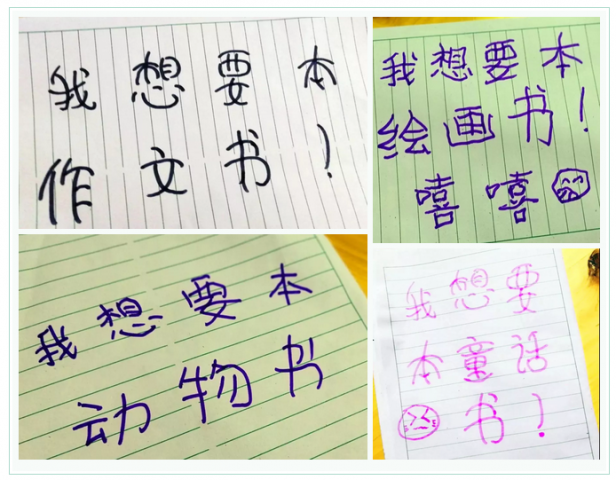 我想要本
作文书！
我想要本
绘画书！
嘻嘻
我想要本
动物书
我想要
本童话
书！